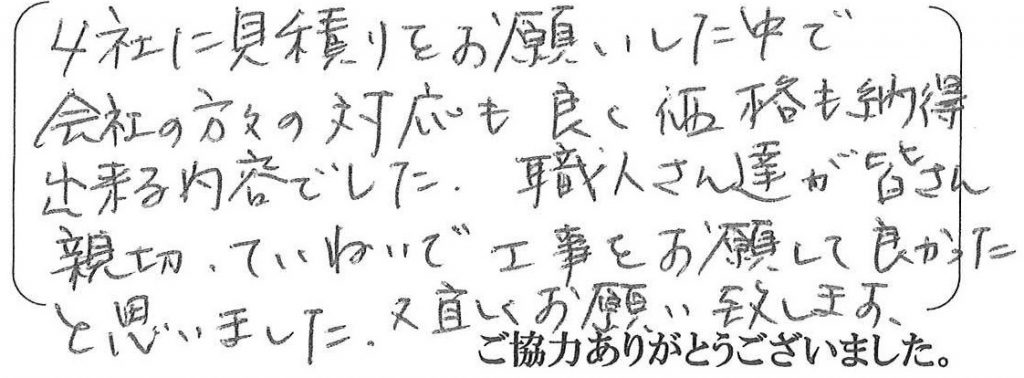 4社に見積りをお願いした中で
会社の方々の対応も良く価格も納得
出来る内容でした. 職人さん達が皆さん
親切、ていねいで工事をお願いして良かった
と思いました. 又宜しくお願い致します、
ご協力ありがとうございました。